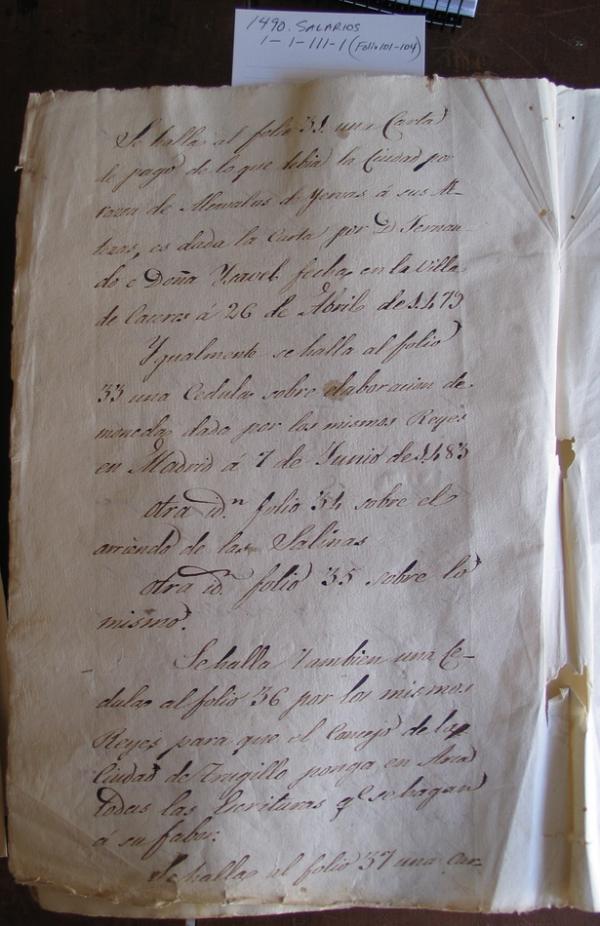 1490. SALARIOS
1-1-111-1 (Folio 101-104)
Se halla al folio 31. una Carta
de pago de lo que debia la Ciudad por
razon de de Yervas á sus Al-
es dada la Carta por D. Fernan-
do e Doña Ysavel fecha en la Villa
de Caceres á 26 de Abril de 1.479
Ygualmente se halla al folio
33 una Cedula sobre elaboracion de
moneda dada por los mismos Reyes
en Madrid á 7 de Junio de 1.483
otra id.n folio 34 sobre el
arriendo de las Salinas
otra id. folio 35 sobre lo
mismo.
Se halla tambien una Ce-
dula al folio 36 por los mismos
Reyes para que el Concejo de la
Ciudad de Trugillo ponga en Arca
todas las Escrituras q.e se hagan
á su fabor.
Se halla al folio 37 una Car-